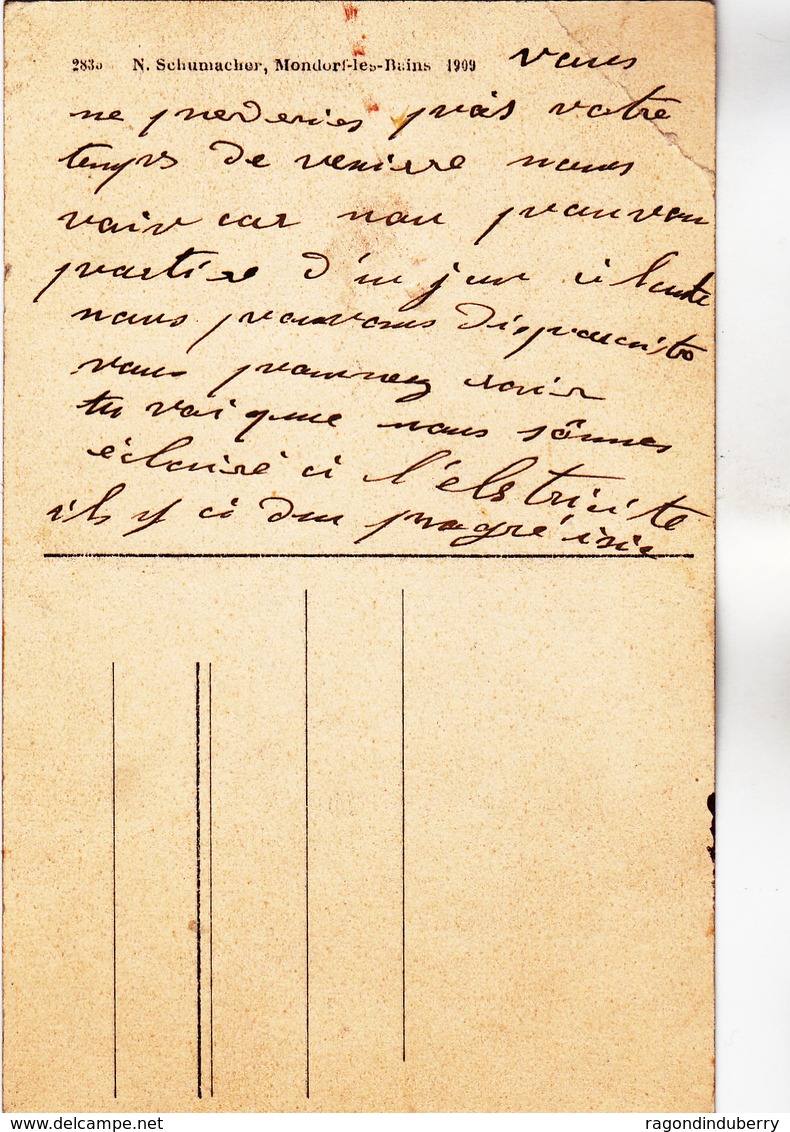 2835 N. Schumacher, Mondorf-les-Bains 1909
vous
ne perderies pas votre
temps de venire nous
voir car nou pouvon
partire d'un jour a laute
nous pouvons disparaitre
vous pouvez
tu voi que nous sômnes
éclairé a l'elstricite
ils y a du progré isi
www.delcampe.net
ragondinduberry